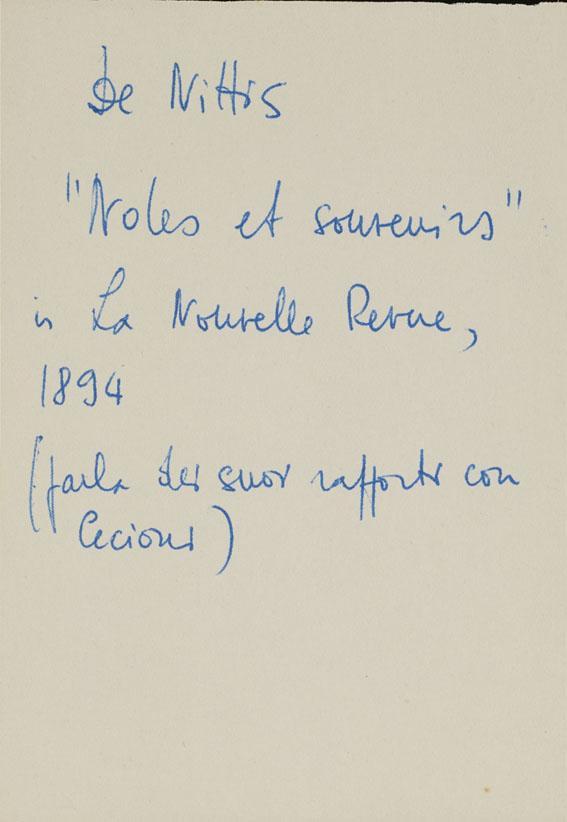 De Nittis
"Notes et souvenirs"
in La Nouvelle Revue,
1894
(parla dei suoi rapporti con
Cecioni)